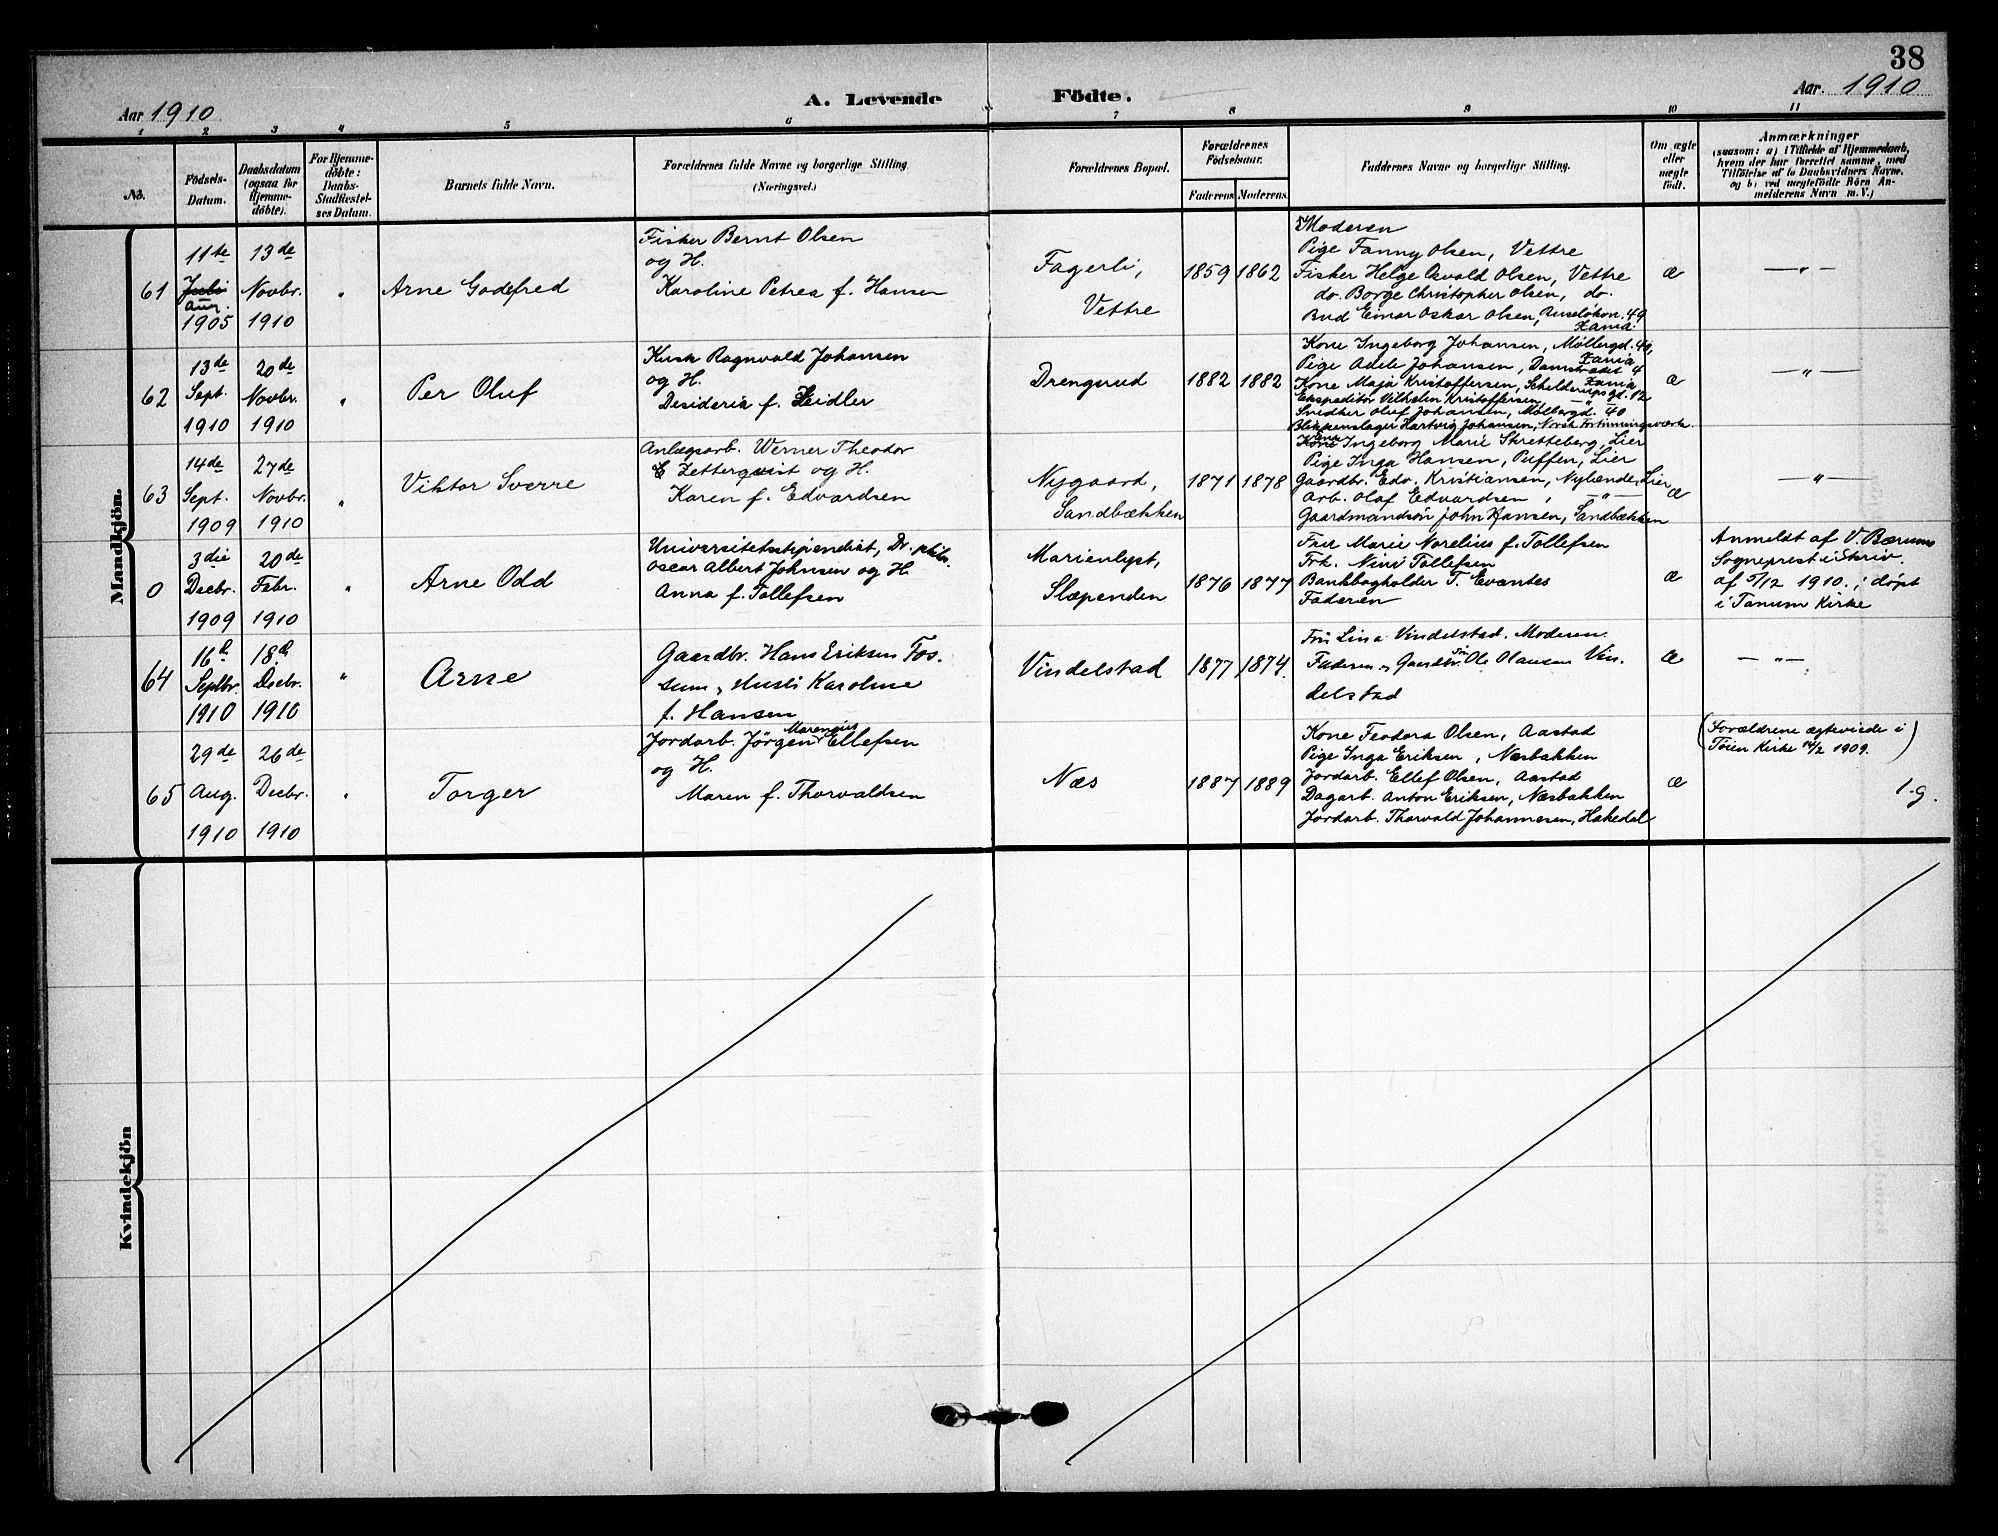 38
Aar 1910
A. Levende Födte.
Aar. 1910
1 2 3 4 5 6 7 8 9 10 11
No.
Födsels-
Datum.
Daabsdatum
(ogsaa for
Hjemme-
döbte).
For Hjemme-
döbte:
Daabs-
Stadfæstel-
ses Datum.
Barnets fulde Navn.
Forældrenes fulde Navne og borgerlige Stilling
(Næringsvei.)
Forældrenes Bopæl.
Forældrenes
Födselsaar.
Faderens Moderens
Faddernes Navne og borgerlige Stilling.
Om ægte
eller
uægte
födt.
Anmærkninger
(saasom: a) i Tilfælde af Hjemmedaab,
hvem der har forrettet samme, med
Tilföielse af to Daabsvidners Navne,
og b) ved uægtefödte Börn An-
melderens Navn m. V.)
Mandkjön.
61
11te
Juli
Aug.
1905
13de
Novbr.
1910
"
Arne Godefred
Fisker Bernt Olsen
og H.
Karoline Petrea f. Hansen
Fagerli,
Vettre
1859 1862
Moderen
Pige Fanny Olsen, Vettre
Fisker Helge Osvald Olsen, Vettre
do. Borge Christopher Olsen, do.
Bud Einar Oskar Olsen, Ruseløkvn. 49
Xania
æ
— " —
62
13de
Sept.
1910
20de
Novbr.
1910
"
Per Oluf
Kusk Ragnvald Johansen
og H.
Desideria f. Zeidler
Drengsrud
1882 1882
Kone Ingeborg Johansen, Møllergd. 40,
Xania
Pige Adele Johansen, Damstrædet 4
Xania
Kone Maja Kristoffersen, Schelderupsgd. 12
Ekspeditör Vilhelm Kristoffersen, — " —
Snedker Oluf Johansen, Møllergd. 40
Blikkenslager Hartvig Johansen, Norsk Fortinningsværk
æ
— " —
63
14de
Sept.
1909
27de
Novbr.
1910
"
Viktor Sverre
Anlægsarb. Werner Theodor
Zetterquist og H.
Karen f. Edvardsen
Nygaard,
Sandbækken
1871 1878
Kone Ingeborg Marie Stretteberg, Lier
Pige Inga Hansen, Puffen, Lier
Gaardbr. Edv. Kristiansen, Nylænde, Lier
Arb. Olaf Edvardsen, — " —
Gaardmandsön John Hansen, Sandbækken
æ
— " —
0
3die
Decbr.
1909
20de
Febr.
1910
"
Arne Odd
Universitetsstipendiat, Dr. philos.
Oscar Albert Johnsen og H.
Anna f. Tollefsen
Marienlyst,
Slæpenden
1876 1877
Fru Marie Norelius f. Tollefsen
Frk. Nini Tollefsen
Bankbogholder T. Evantes
Faderen
æ
Anmeldt af V. Bærums
Sogneprest i Skriv.
af 5/12 1910.; døpt
i Tanum Kirke
64
16d.
Septbr.
1910
18d.
Decbr.
1910
"
Arne
Gaardbr. Hans Eriksen Fos-
sum, Husti Karoline
f. Hansen
Vindelstad
1877 1874.
Fru Lina Vindelstad. Moderen.
Faderen, Gaardbr. sön Ole Olausen Vin-
delstad
æ
— " —
65
29de
Aug.
1910
26de
Decbr.
1910
"
Torger
Jordarb. Jörgen Marenius Ellefsen
og H.
Maren f. Thorvaldsen
Næs
1887 1889
Kone Feodora Olsen, Aastad
Pige Inga Eriksen, Næsbakken
Jordarb. Ellef Olsen, Aastad
Dagarb. Anton Eriksen, Næsbakken
Jordarb. Thorvald Johannesen, Hakedal
æ
(Forældrene ægteviede i
Töien Kirke 14/2 1909.)
1. g.
Kvindekjön